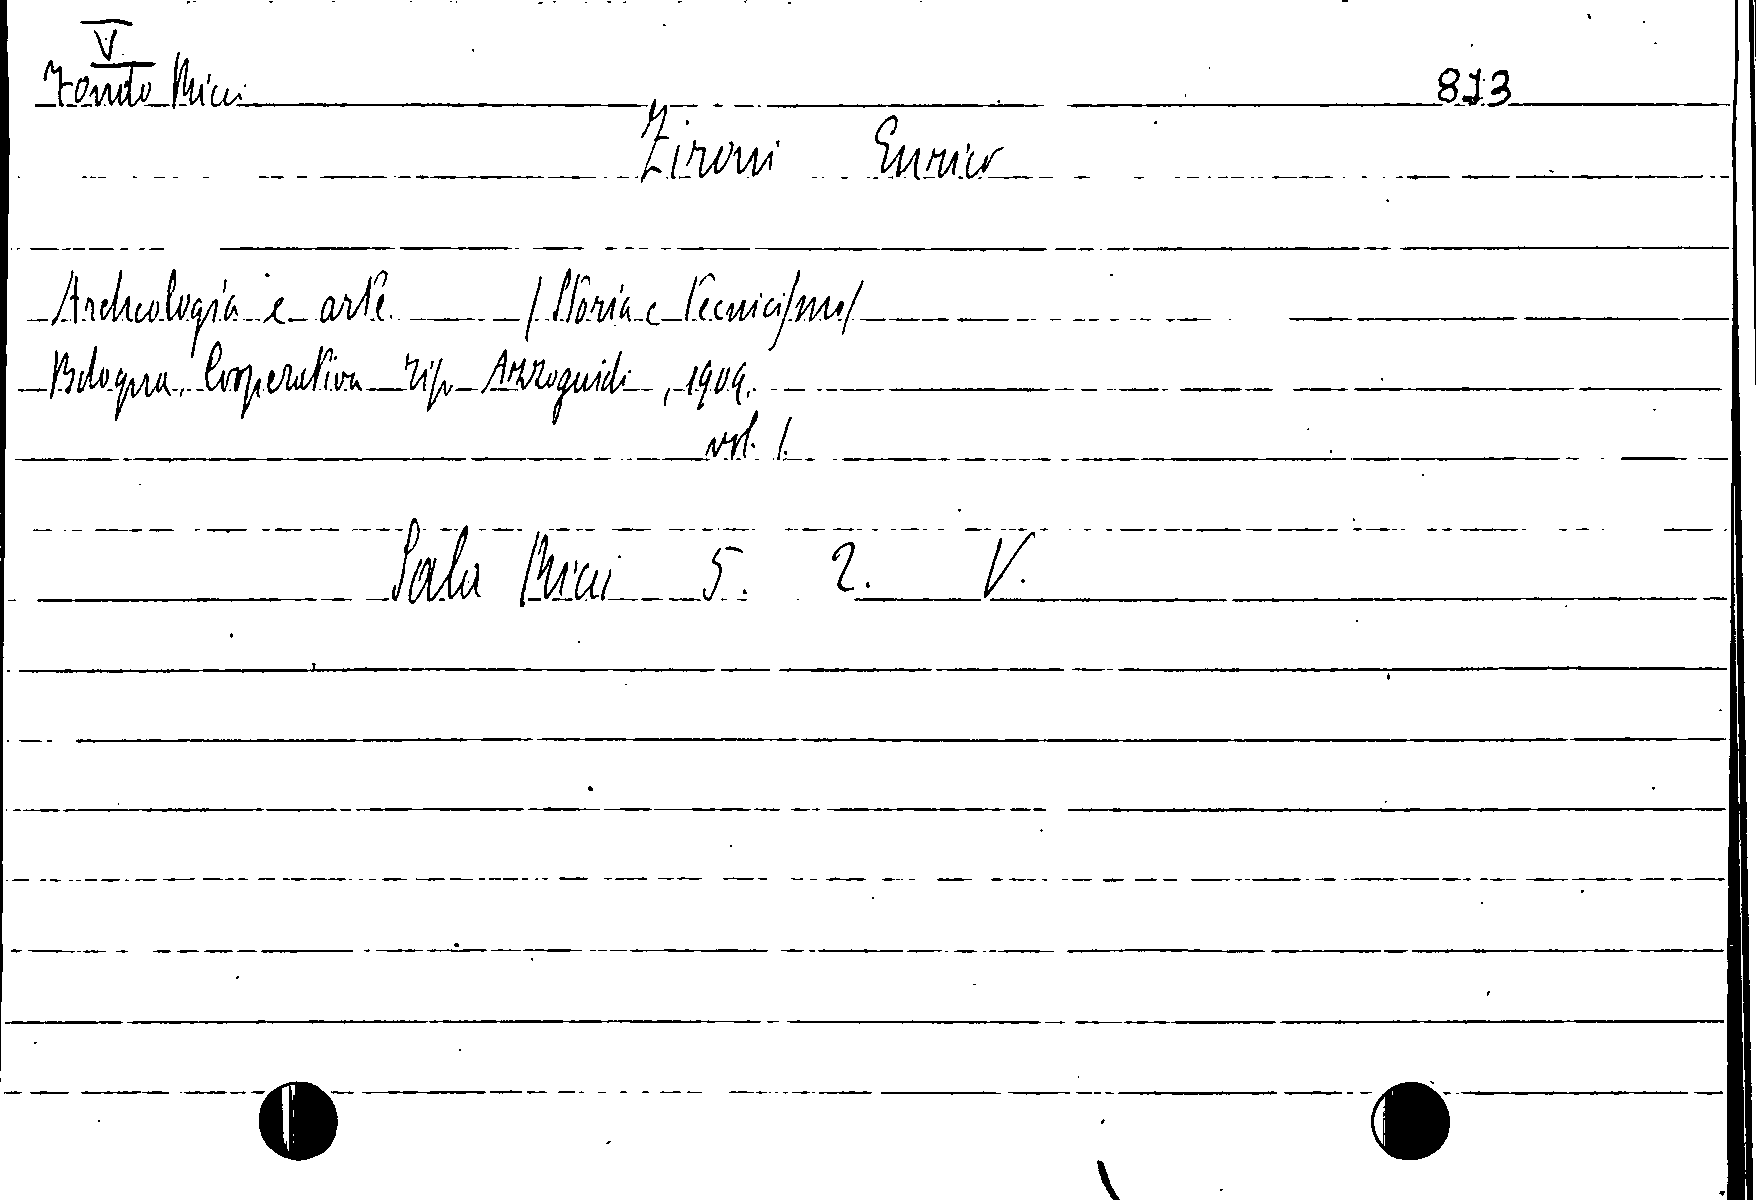 V
Fondo Ricci 873
Zironi Enrico
Archeologia e arte / Storia e tecnicismo /
Bologna. Cooperativa tip. Azzoguidi, 1909.
vol. 1.
Sala Ricci 5. 2. V.